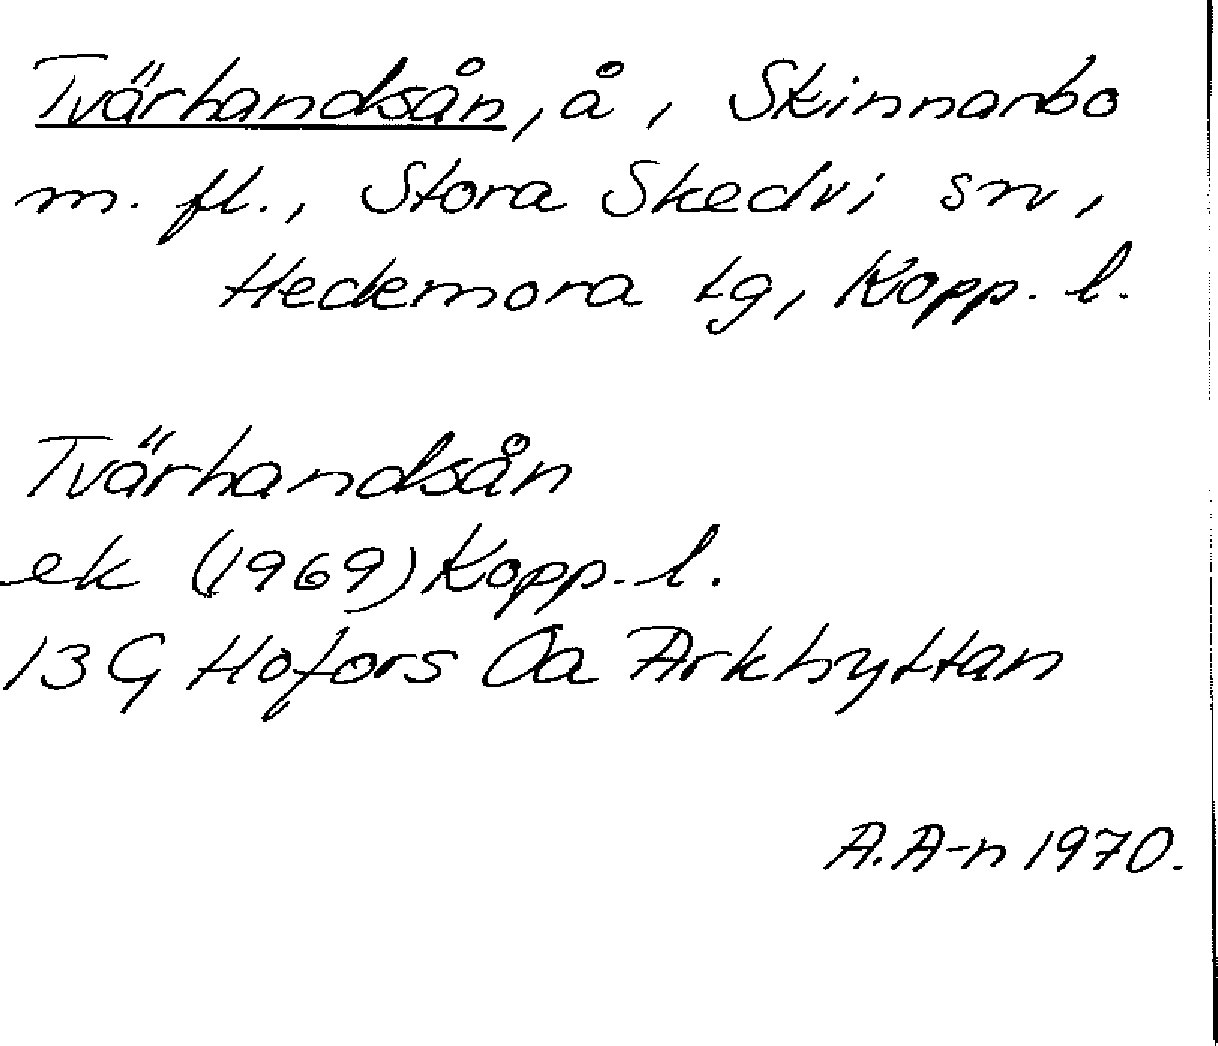 Tvärhandsån, å, Skinnarbo
m. fl., Stora Skedvi sn,
Hedemora tg, Kopp. l.
Tvärhandsån
ek (1969) Kopp. l.
13 G Hofors Oa Arkhyttan
A. A-n 1970.